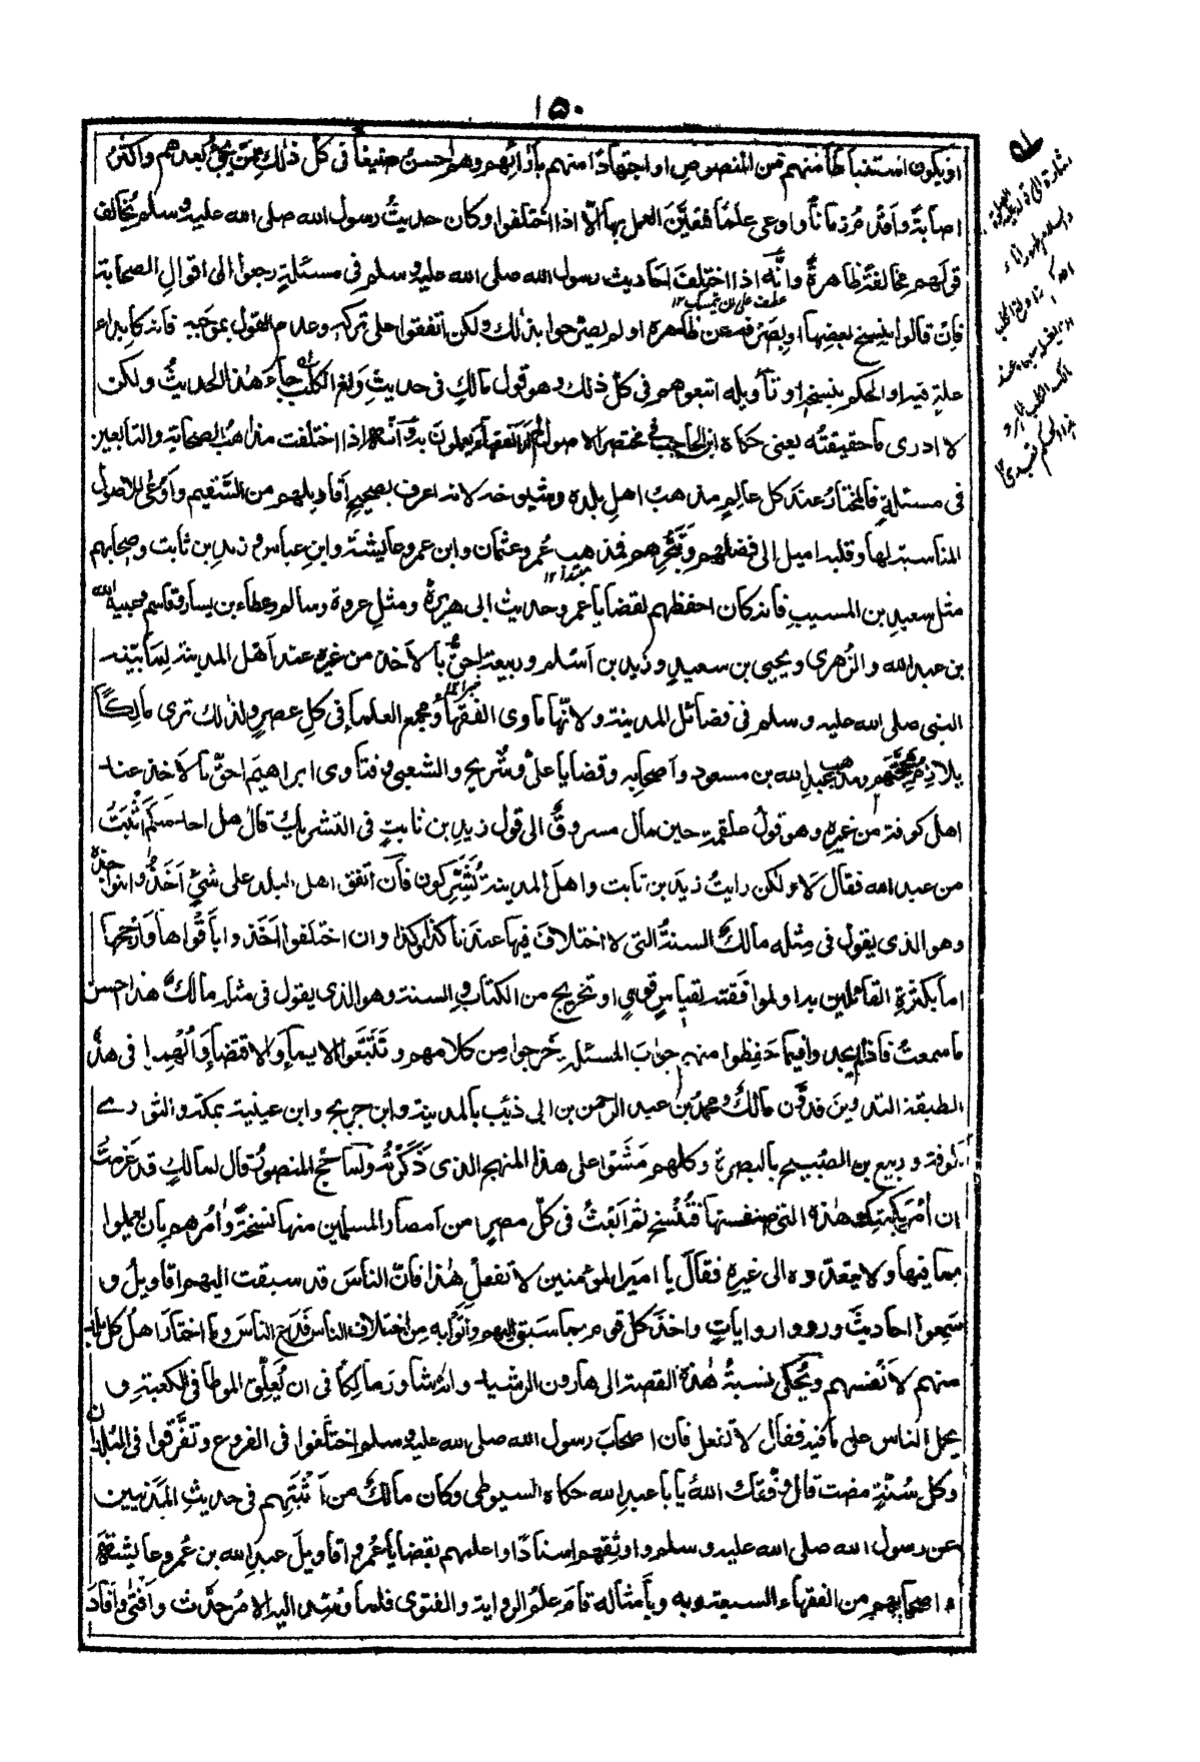 ١٥٠
او يكون استنباطا منهم من المنصوص او اجتهادًا منهم بآرائهم وهم احسن صنيعا فى كل ذلك ممن يجئ بعدهم واكثر
اصابةً واقدم زمانًا واوعى علمًا فتعيّن العمل بها الّا اذا اختلفوا وكان حديثُ رسول الله صلى الله عليه وسلم يخالف
قولهم مخالفةً ظاهرةً وانّه اذا اختلف احاديث رسول الله صلى الله عليه وسلم فى مسئلةٍ رجعوا الى اقوال الصحابة
فان قالوا بنسخ بعضها او بصرفه عن ظاهره او لم يصرّحوا بذلك ولكن اتفقوا على تركه وعدم القول بموجبه فانه كابداء
علةٍ فيه او الحكم بنسخه او تأويله اتبعوهم فى كل ذلك وهو قول مالكٍ فى حديث ولوغ الكلب جاء هذا الحديث ولكن
لا ادرى ما حقيقته يعنى حكاه ابن الحاجب فى مختصر الاصول لم ار الفقهاء يعملون به وانّه اذا اختلفت مذاهب الصحابة والتابعين
فى مسئلةٍ فالمختار عند كل عالمٍ مذهب اهل بلده وشيوخه لانه اعرف بصحيح اقاويلهم من السقيم واوعى للاصول
المناسبة لها وقلبه اميل الى فضلهم وتبحّرهم فمذهب عُمر وعثمان وابن عمر وعائيشة وابن عباس و زيد بن ثابت وصحابهم
مثل سعيد بن المسيب فانه كان احفظهم لقضايا عمر وحديث ابى هريرة ومثل عروة وسالم وعطاء بن يسار وقاسم وعبيد الله
بن عبد الله والزهرى ويحيى بن سعيد وزيد بن اسلم وربيعة احقُّ بالاخذ من غيره عند اهل المدينة لِما بيّنه
النبى صلى الله عليه وسلم فى فضائل المدينة ولانّها ماوى الفقهاء ومجمع العلماء فى كل عصرٍ ولذلك ترى مالِكًا
يلازم محجّتهم ومذهب عبد الله بن مسعود واصحابه وقضايا علىٍ وشريح والشعبى وفتاوى ابراهيم احقُّ بالاخذ عند
اهل كوفة من غيره وهو قول علقمة حين مال مسروقٌ الى قول زيد بن ثابتٍ فى التشريك قال هل احد منكم اثبتُ
من عبد الله فقال لا ولكن رايتُ زيد بن ثابت واهل المدينة يُشَرِّكون فان اتفق اهل البلد على شيئ اَخَذُوا بنواجذه
وهو الذى يقول فى مثله مالكٌ السنةُ التى لا اختلاف فيها عندنا كذا وكذا وان اختلفوا اَخَذوا باقواها وارجحها
اما بكثرة القائلين به او لموافقته لقياسٍ قوىٍ او تخريج من الكتاب و السنة وهو الذى يقول فى مثله مالكٌ هذا احسن
ما سمعتُ فاذا لم يجدوا فيما حَفِظوا منهم جوابَ المسئلة خرجوا من كلامهم وتَتَبَّعوا الايماء والاقتضاء واُلهموا فى هذه
الطبقة التدوين فدوّن مالكٌ ومحمد بن عبد الرحمن بن ابى ذئب بالمدينة وابن جريج وابن عيينة بمكة والثورے
بالكوفة و ربيع بن الصبيح بالبصرة وكلهم مَشَوا على هذا المنهج الذى ذكرتُه ولما حجّ المنصور قال لمالكٍ قد عزمتُ
ان اٰمر بكتبك هٰذه التى صنفتها فتُنسخ ثم ابعَثُ فى كلّ مصرٍ من امصار المسلمين منها نسخةً واٰمرهم بان يعملوا
بما فيها ولا يتعدّوه الى غيره فقالَ يا امير المؤمنين لا تفعل هٰذا فانّ الناسَ قد سبقت اليهم اقاويلُ و
سَمِعوا احاديثَ ورووا رواياتٍ واخذ كل قومٍ بما سَبق اليهم واَتَوا به من اختلاف الناس فَدَع الناسَ وما اختارَ اهلُ كل بلدٍ
منهم لانفسهم ويُحكى نسبةُ هٰذه القصة الى هارون الرشيد وانه شاور مالكًا فى ان يُعلّق الموطا فى الكعبة و
يحمل الناس على ما فيه فقال لا تفعل فان اصحابَ رسول الله صلى الله عليه وسلم اختلفوا فى الفروع وتفرّقوا فى البلدان
وكلُّ سُنّةٍ مضت قال وفّقك اللهُ يا ابا عبد الله حكاه السيوطى وكان مالكٌ من اثبتهم فى حديث المدنيين
عن رسول الله صلى الله عليه وسلم واوثقهم اسنادًا واعلمهم بقضايا عُمر واقاويلَ عبد الله بن عُمر وعائيشة
واصحابهم من الفقهاء السبعة وبه وبأمثاله قام علم الرواية والفتوى فلما وُسِد اليه الامر حدّث وافتى وافاد